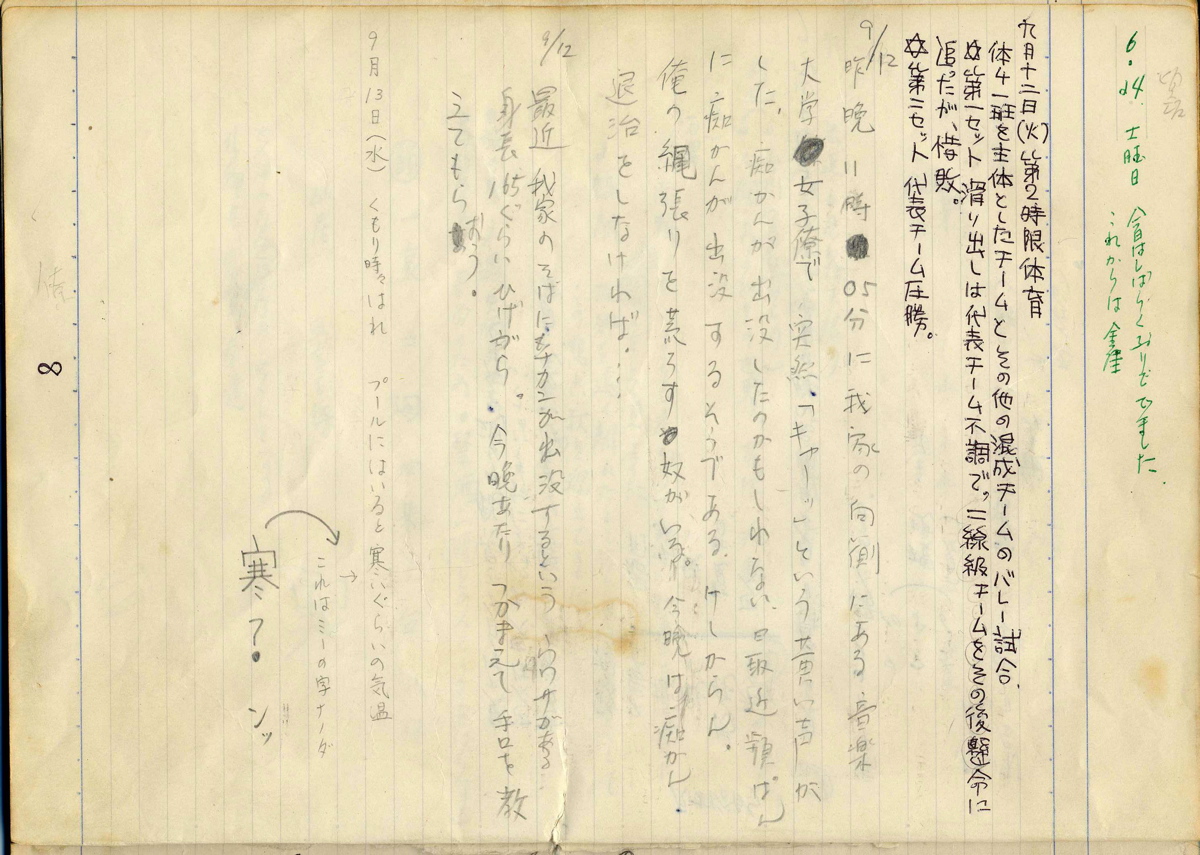 6.24 土曜日 今日はしばらくぶりででました
これからは 金屋
九月十二日(火)第2時限体育
体4一班を主体としたチームとその他の混成チームのバレー試合
☆第一セット滑り出しは代表チーム不調で。二線級チームをその後懸命に
追ったが、惜敗。
☆第二セット代表チーム圧勝。
9/12
昨晩11時05分に我家の向側にある音楽
大学女子寮で突然「キャーッ」という黄い声が
した。痴かんが出没したのかもしれない 最近 頻ぱん
に痴かんが出没するそうである。けしからん。
俺の縄張りを荒らす奴がいる。今晩は痴かん
退治をしなければ…
9/12
最近 我家のそばにもチカンが出没するという ウワサがある
身長165ぐらい ひげづら。今晩あたり つかまえて 手口を教
えてもらおう。
9月13日(水) くもり時々はれ プールにはいると寒いぐらいの気温
→
これはミーの字ナノダ
寒?ンッ
8